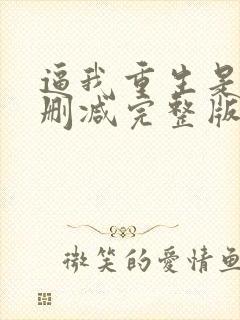 逼我重生是
删减完整版
微笑的爱情鱼